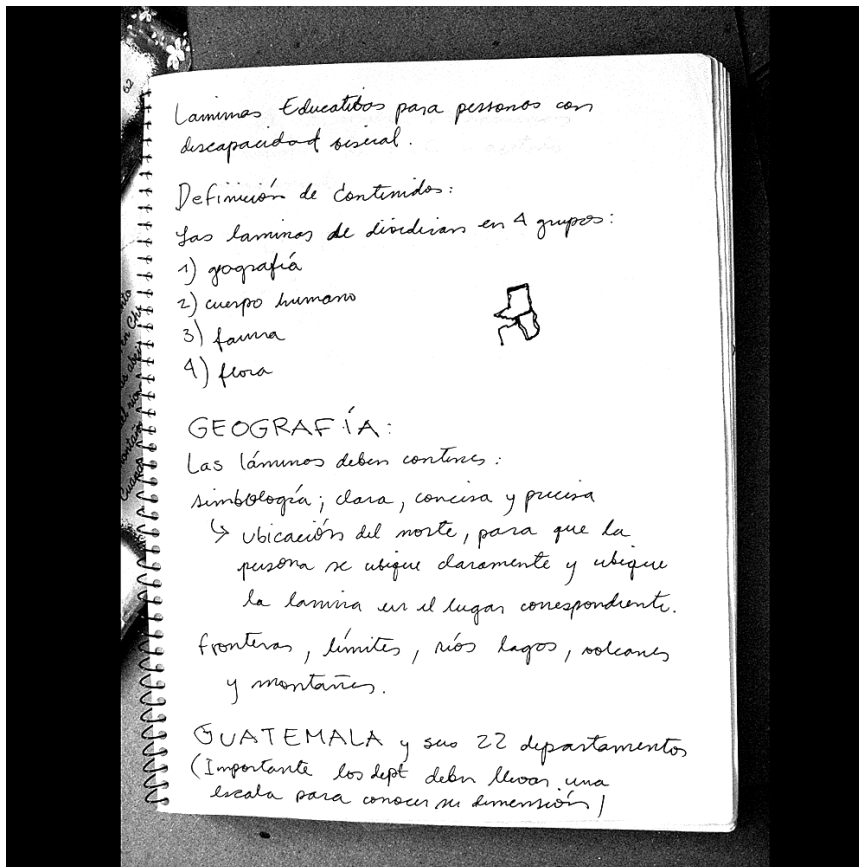 Laminas Educatibas para personas con
discapacidad visual.
Definición de Contenidos:
Las laminas de dividiran en 4 grupos:
1) geografía
2) cuerpo humano
3) fauna
4) flora
GEOGRAFÍA:
Las láminas deben contener:
simbología; clara, concisa y precisa
↳ ubicación del norte, para que la
persona se ubique claramente y ubique
la lamina en el lugar correspondiente.
fronteras, límites, ríos lagos, volcanes
y montañes.
GUATEMALA y sus 22 departamentos
(Importante los dept deben llevar una
escala para conocer su dimensión)
62